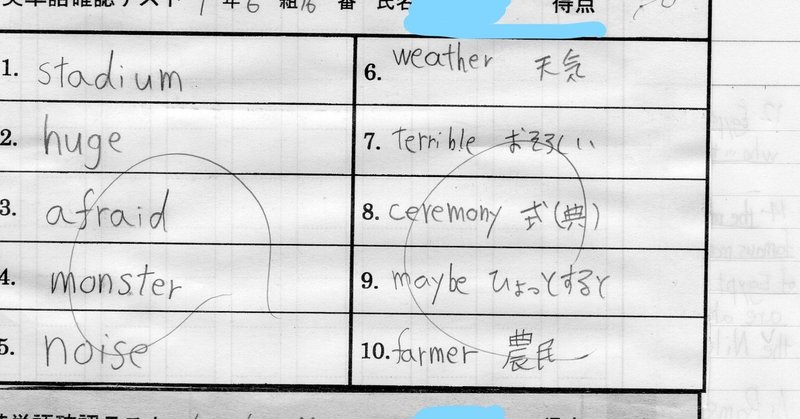 英単語確認テスト 1年6組16番 氏名 得点
1. stadium
2. huge
3. afraid
4. monster
5. noise
6. weather 天気
7. terrible おそろしい
8. ceremony 式(典)
9. maybe ひょっとすると
10. farmer 農民